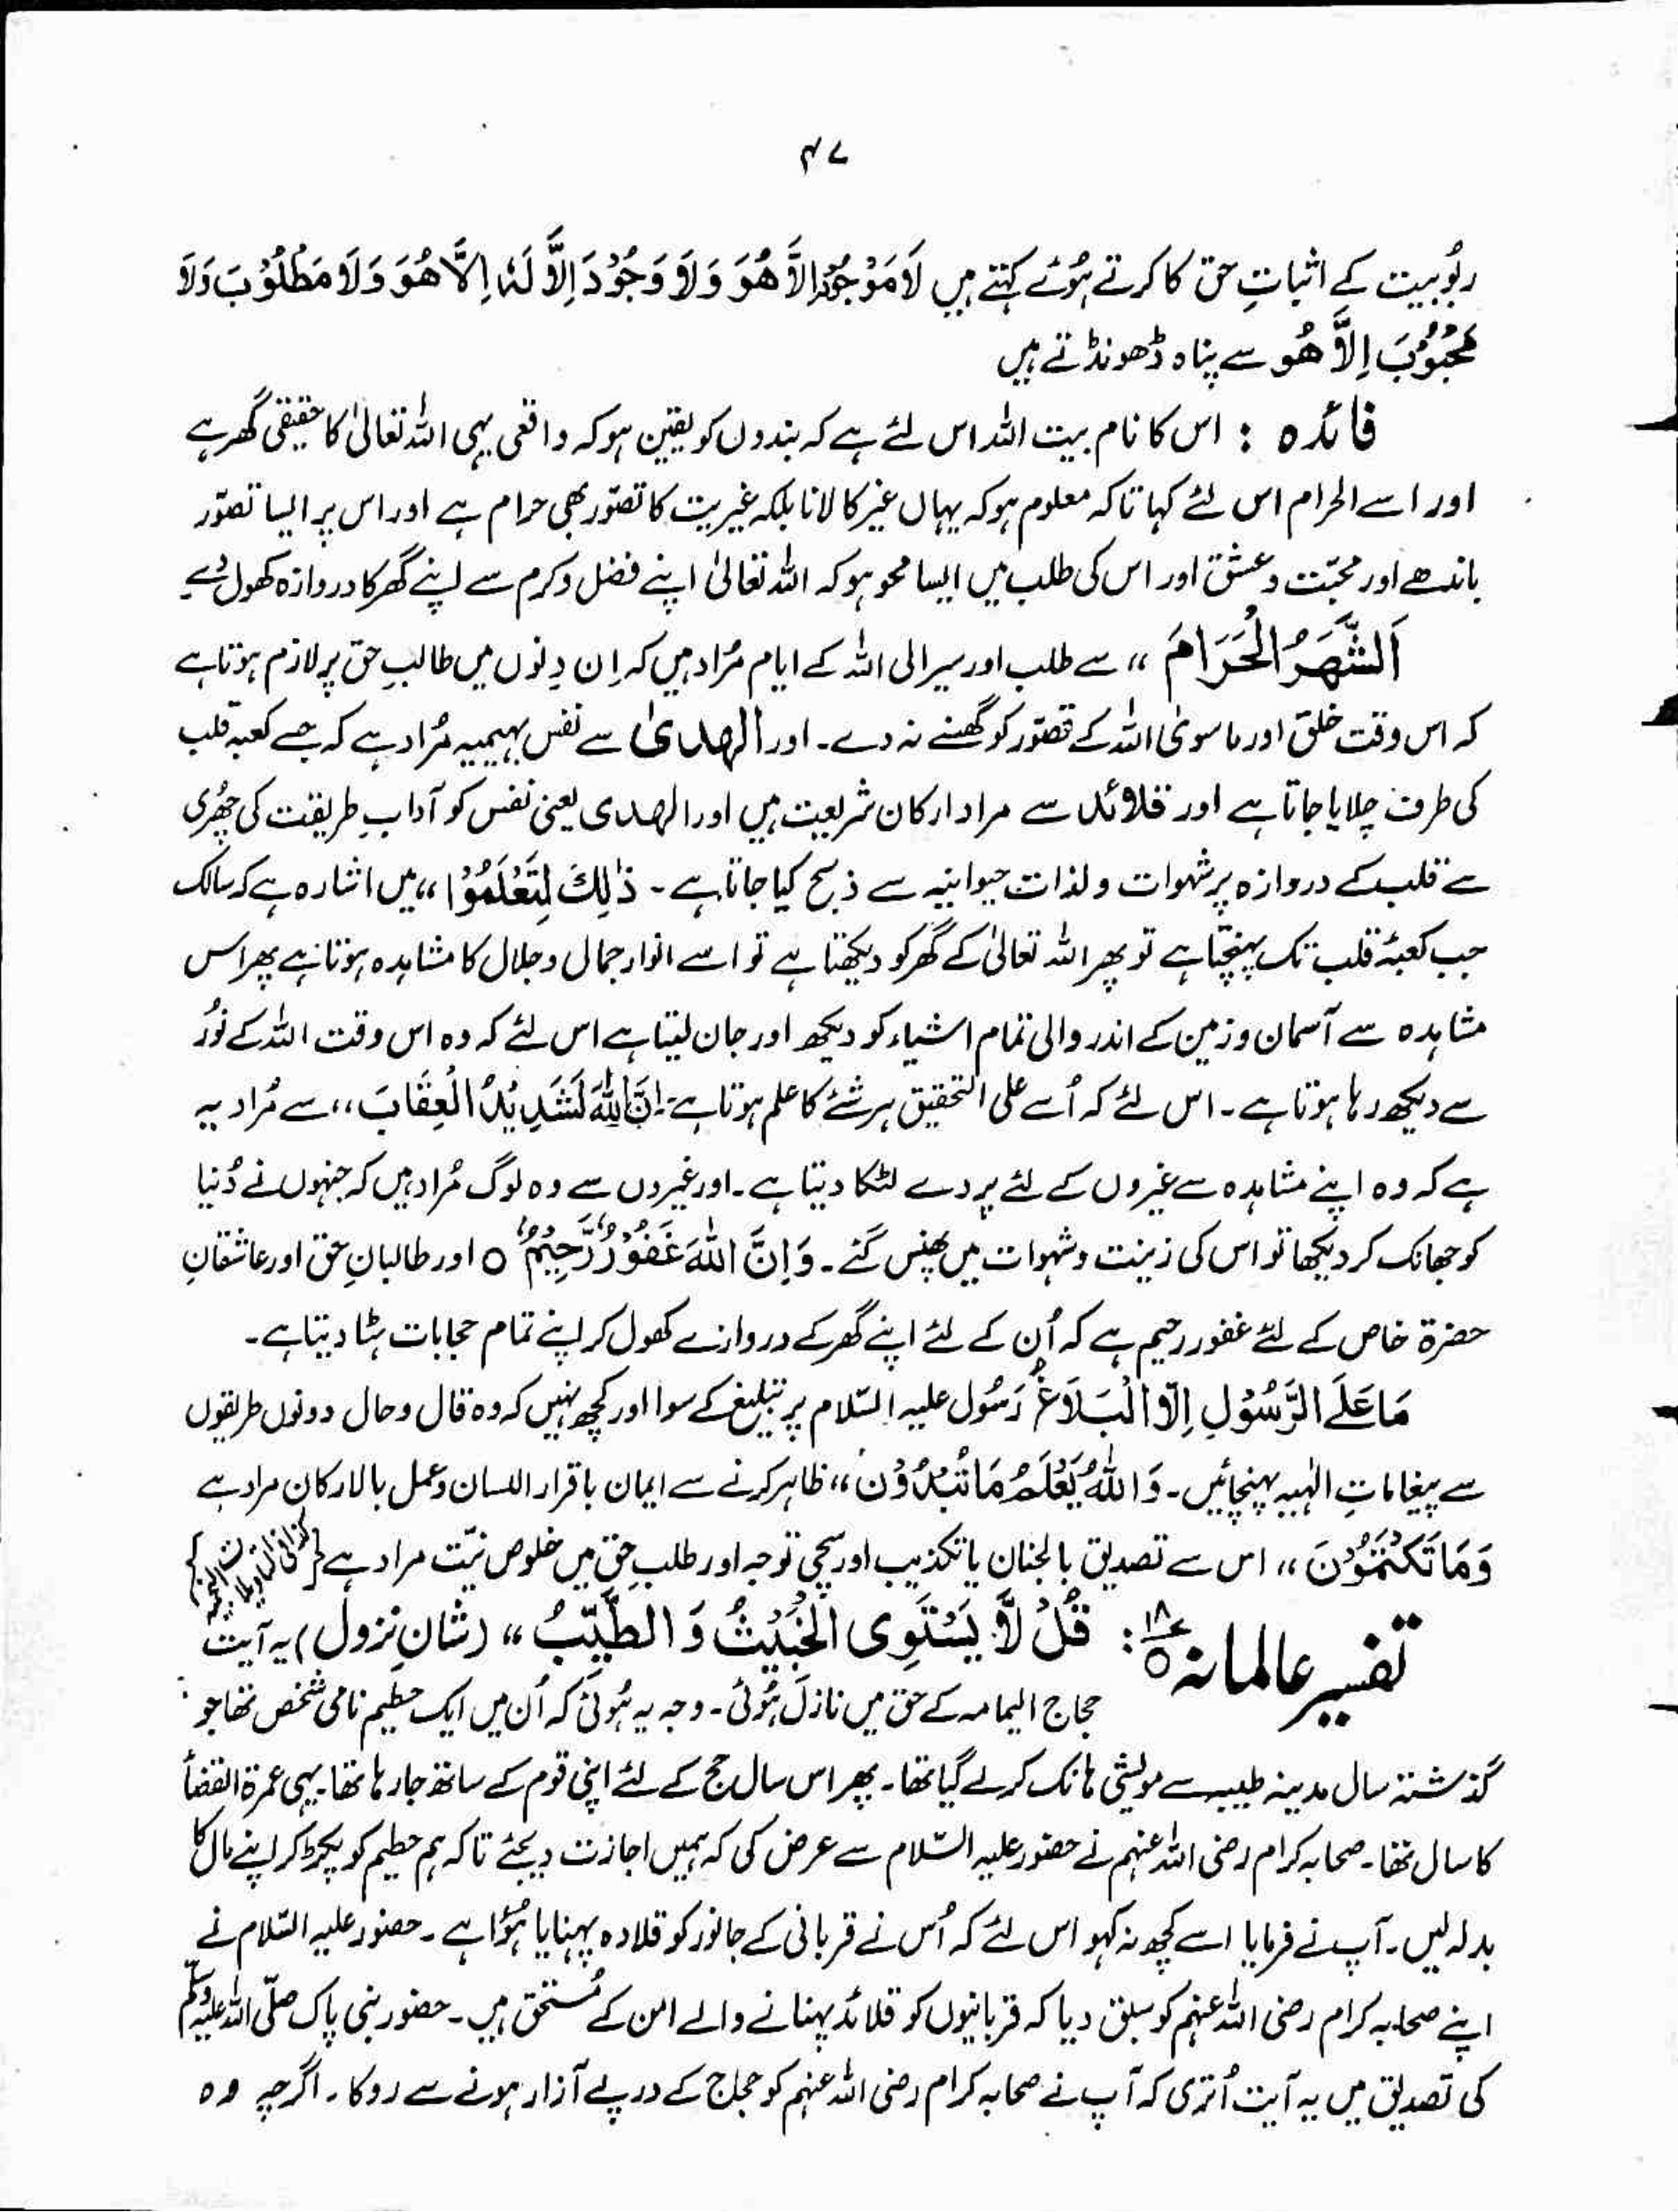 ۴۷
ربُوبیت کے اثباتِ حق کا کرتے ہُوئے کہتے ہیں لَا مَوْجُوْدَ اِلَّا هُوَ وَلَا وَجُوْدَ اِلَّا لَهٗ اِلَّا هُوَ وَلَا مَطْلُوْبَ وَلَا
مَحْبُوْبَ اِلَّا هُو سے پناہ ڈھونڈتے ہیں
فائدہ : اس کا نام بیت اللہ اس لئے ہے کہ بندوں کو یقین ہو کہ واقعی یہی اللہ تعالیٰ کا حقیقی گھر ہے
اور اسے الحرام اس لئے کہا تاکہ معلوم ہو کہ یہاں غیر کا لانا بلکہ غیریت کا تصوّر بھی حرام ہے اور اس پر ایسا تصوّر
باندھے اور محبّت و عشق اور اس کی طلب میں ایسا محو ہو کہ اللہ تعالیٰ اپنے فضل و کرم سے اپنے گھر کا دروازہ کھول دے
اَلشَّهَرُ الْحَرَامَ ،، سے طلب اور سیر الی اللہ کے ایام مُراد ہیں کہ اِن دِنوں میں طالبِ حق پر لازم ہوتا ہے
کہ اس وقت خلق اور ماسویٰ اللہ کے تصوّر کو گھسنے نہ دے ۔ اور الھدیٰ سے نفس بہیمیہ مُراد ہے کہ جسے کعبہ قلب
کی طرف چلایا جاتا ہے اور قلائد سے مراد ارکان شریعت ہیں اور الھدی یعنی نفس کو آدابِ طریقت کی چھُری
سے قلب کے دروازہ پر شہوات و لذات حیوانیہ سے ذبح کیا جاتا ہے ۔ ذٰلِكَ لِتَعْلَمُوْا ،، میں اشارہ ہے کہ سالک
جب کعبۂ قلب تک پہنچتا ہے تو پھر اللہ تعالیٰ کے گھر کو دیکھتا ہے تو اسے انوار جمال و جلال کا مشاہدہ ہوتا ہے پھر اس
مشاہدہ سے آسمان و زمین کے اندر والی تمام اشیاء کو دیکھ اور جان لیتا ہے اس لئے کہ وہ اس وقت اللہ کے نُور
سے دیکھ رہا ہوتا ہے ۔ اس لئے کہ اُسے علی التحقیق ہر شئے کا علم ہوتا ہے ۔ اِنَّ اللّٰهَ لَشَدِيْدُ الْعِقَابَ ،، سے مُراد یہ
ہے کہ وہ اپنے مشاہدہ سے غیروں کے لئے پردے لٹکا دیتا ہے ۔ اور غیروں سے وہ لوگ مُراد ہیں کہ جنہوں نے دُنیا
کو جھانک کر دیکھا تو اس کی زینت و شہوات میں پھنس گئے ۔ وَاِنَّ اللّٰهَ غَفُوْرٌ رَّحِيْمٌ ۝ اور طالبانِ حق اور عاشقانِ
حضرۃ خاص کے لئے غفور رحیم ہے کہ اُن کے لئے اپنے گھر کے دروازے کھول کر اپنے تمام حجابات ہٹا دیتا ہے ۔
مَا عَلَى الرَّسُوْلِ اِلَّا الْبَلَاغُ رَسُول علیہ السّلام پر تبلیغ کے سوا اور کچھ نہیں کہ وہ قال و حال دونوں طریقوں
سے پیغاماتِ الٰہیہ پہنچائیں ۔ وَاللّٰهُ يَعْلَمُ مَا تُبْدُوْنَ ،، ظاہر کرنے سے ایمان باقرار اللسان و عمل بالارکان مراد ہے
وَمَا تَكْتُمُوْنَ ،، اس سے تصدیق بالجنان یا تکذیب اور سچی توجہ اور طلبِ حق میں خلوص نیّت مراد ہے
تفسیر عالمانہ : قُلْ لَّا يَسْتَوِى الْخَبِيْثُ وَ الطَّيِّبُ ،، (شانِ نزول) یہ آیت
حجاج الیمامہ کے حق میں نازل ہُوئی ۔ وجہ یہ ہُوئی کہ اُن میں ایک حطیم نامی شخص تھا جو
گذشتہ سال مدینہ طیبہ سے مویشی ہانک کر لے گیا تھا ۔ پھر اس سال حج کے لئے اپنی قوم کے ساتھ جا رہا تھا ۔ یہی عمرۃ القضأ
کا سال تھا ۔ صحابہ کرام رضی اللہ عنہم نے حضور علیہ السّلام سے عرض کی کہ ہمیں اجازت دیجئے تاکہ ہم حطیم کو پکڑ کر اپنے مال کا
بدلہ لیں ۔ آپ نے فرمایا اسے کچھ نہ کہو اس لئے کہ اُس نے قربانی کے جانور کو قلادہ پہنایا ہُوا ہے ۔ حضور علیہ السّلام نے
اپنے صحابہ کرام رضی اللہ عنہم کو سبق دیا کہ قربانیوں کو قلائد پہنانے والے امن کے مُستحق ہیں ۔ حضور نبی پاک صلّی اللہ علیہ وسلّم
کی تصدیق میں یہ آیت اُتری کہ آپ نے صحابہ کرام رضی اللہ عنہم کو حجاج کے درپے آزار ہونے سے روکا ۔ اگرچہ وہ